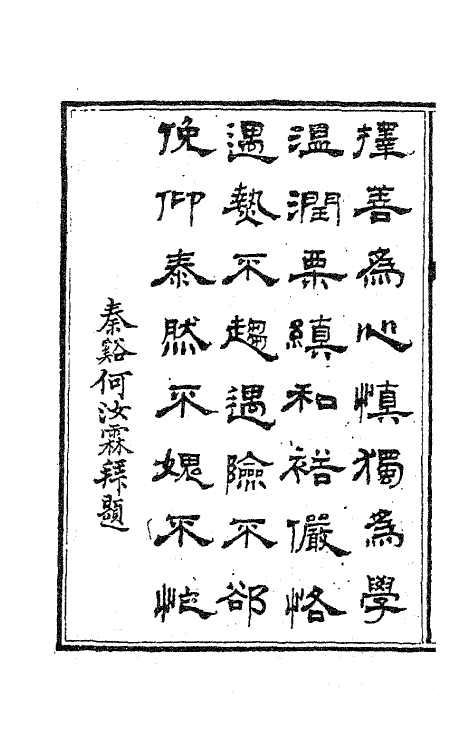 擇善為心慎獨為學
溫潤栗縝和裕儼恪
遇熱不趨遇險不卻
俛仰泰然不媿不怍
秦谿何汝霖拜題